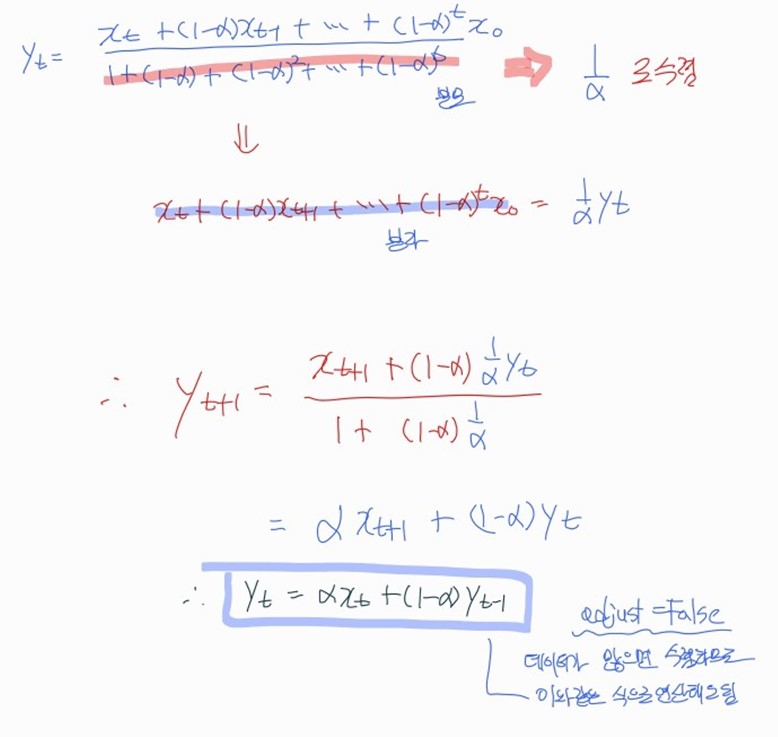 y_t = (x_t + (1-α)x_{t-1} + ⋯ + (1-α)^t x_0) / (1 + (1-α) + (1-α)^2 + ⋯ + (1-α)^t) ⇒ 1/α 로 수렴
분모
⇓
x_t + (1-α)x_{t-1} + ⋯ + (1-α)^t x_0 = 1/α y_t
분자
∴ y_{t+1} = (x_{t+1} + (1-α) 1/α y_t) / (1 + (1-α) 1/α)
= α x_{t+1} + (1-α) y_t
∴ y_t = αx_t + (1-α) y_{t-1}
adjust = False
데이터가 많으면 수렴하므로
이와같은 식으로 연산해도 됨